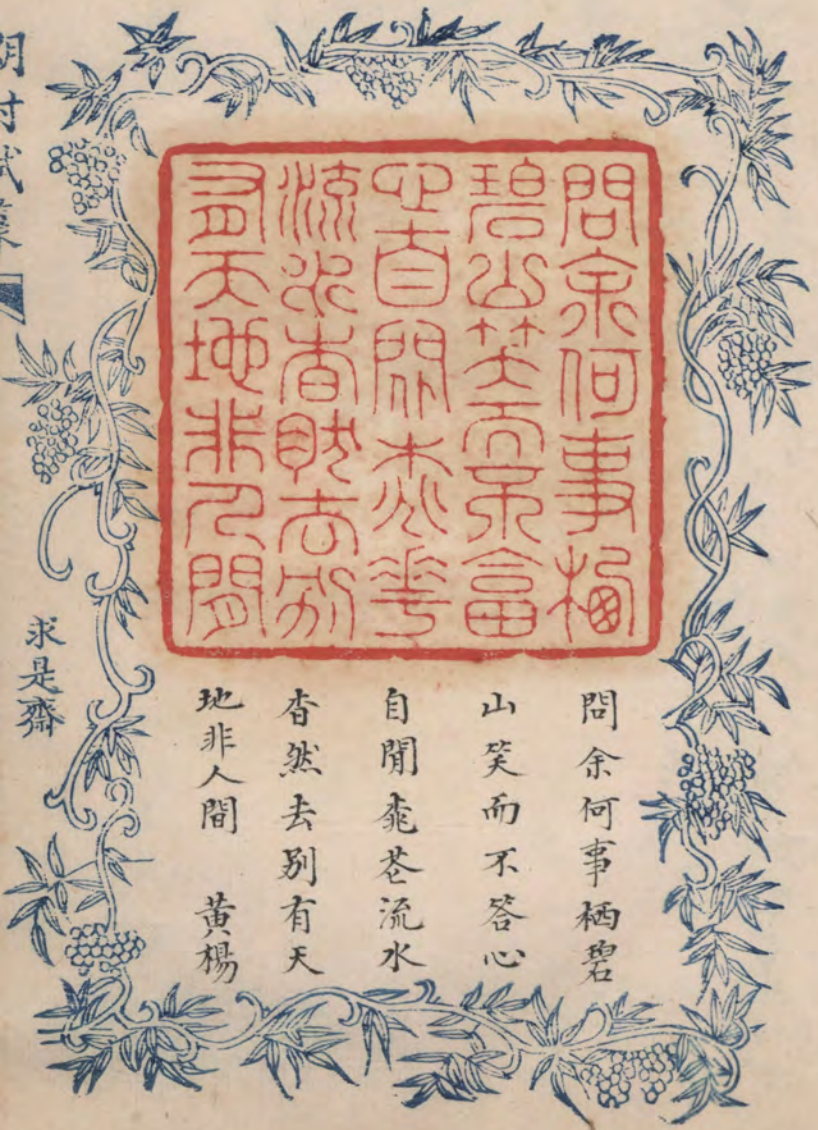 問余何事栖
碧山笑而不畣
心自閒桃華
流水杳然去別
有天地非人間
問余何事栖碧
山笑而不答心
自閒桃花流水
杳然去别有天
地非人間　黄楊
求是齋